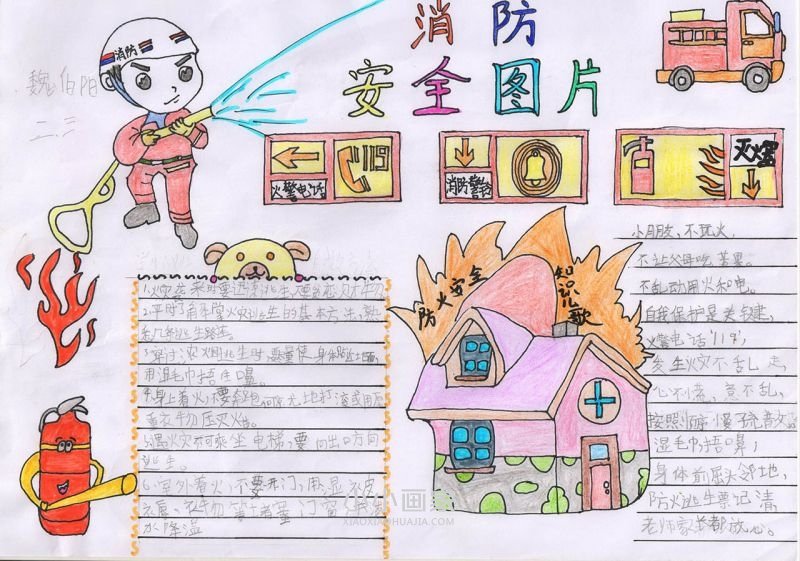 消防
安全图片
消防
魏伯阳
二.三
119
火警电话
消防警铃
灭火器
防火安全
知识儿歌
1.火灾袭来时要迅速逃生,不要贪恋财物
2.平时了解掌火灾逃生的基本方法,熟
悉几条逃生路线。
3.穿过浓烟逃生时,要尽量使身体贴近地面,
用湿毛巾捂住口鼻。
4.身上着火,不要奔跑,可就地打滚或用厚
重衣物压灭火苗。
5.遇火灾不可乘坐电梯,要向出口方向
逃生。
6.室外着火,不要开门,用湿
衣服等堵塞门窗
水降温
小朋友、不玩火,
不让父母吃苦果。
不乱动用火和电,
自我保护是关键,
火警电话"119",
发生火灾不乱走,
心不慌,意不乱,
按照
湿毛巾捂口鼻,
身体前屈头邻地,
防火逃生要记清
老师家长都放心。
小小画家
XIAOXIAOHUAJIA.COM